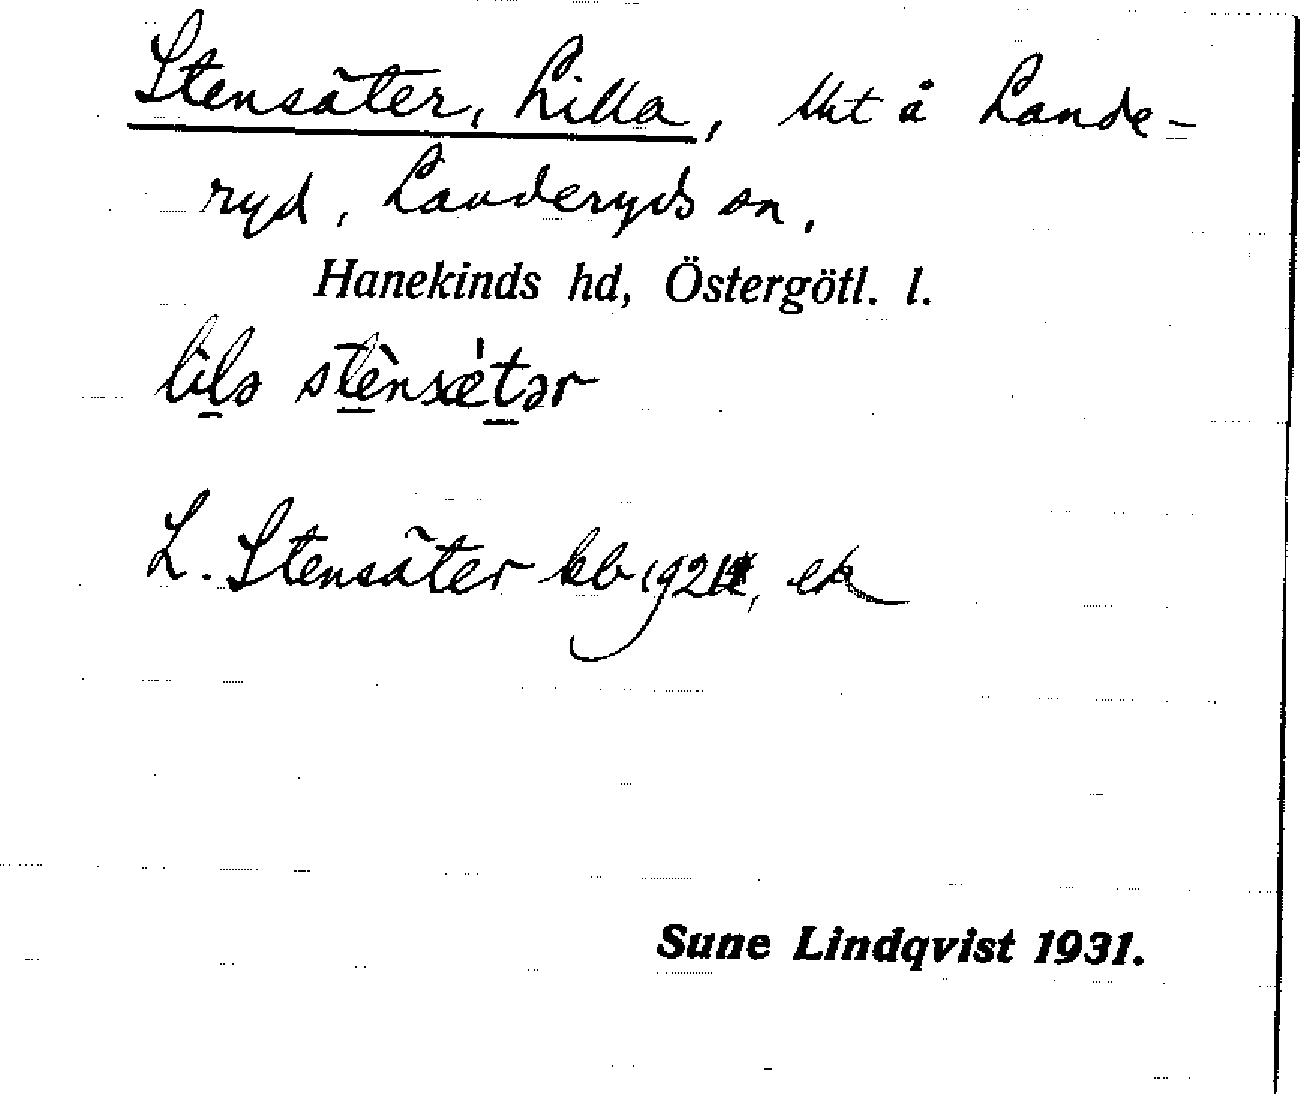 Stensäter, Lilla, lht å Lande-
ryd, Landeryds sn,
Hanekinds hd, Östergötl. l.
lìlə stènsètər
L. Stensäter kb, ek
Sune Lindqvist 1931.